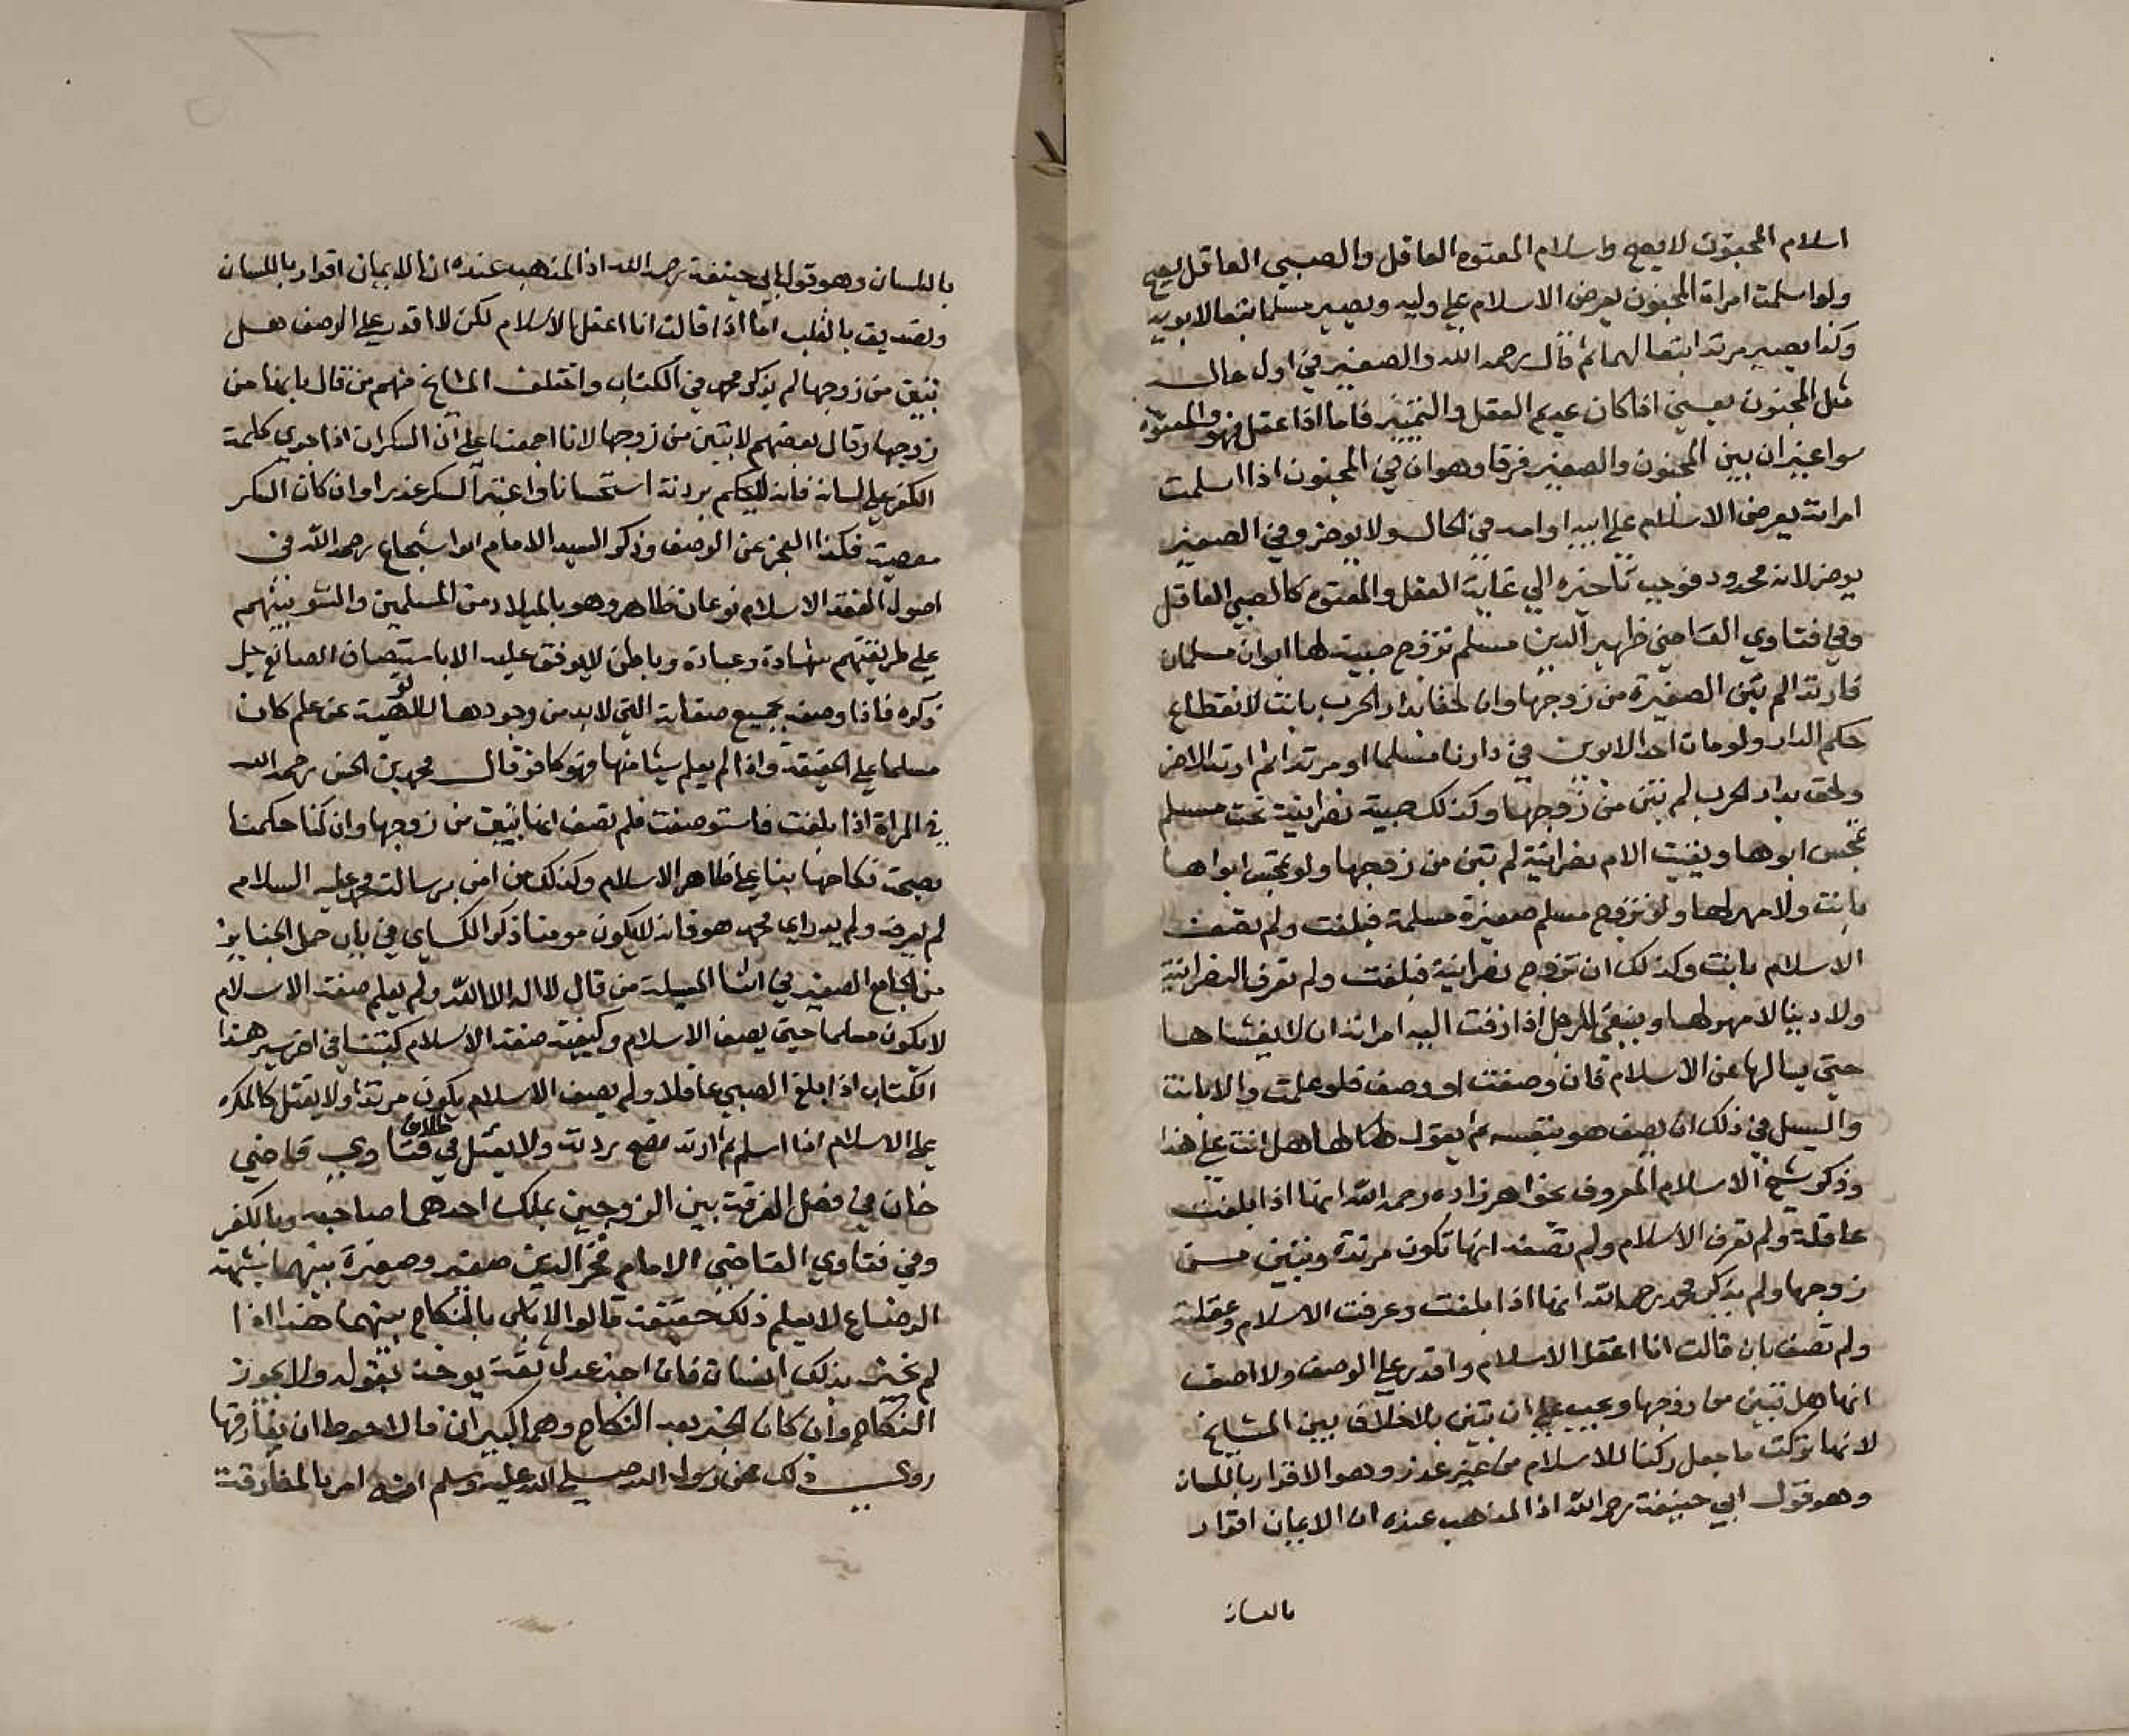 اسلام المجنون لا يصح واسلام المعتوه العاقل والصبي العاقل يصح
ولو اسلمت امراة المجنون يعرض الاسلام علي وليه ويصير مسلما تبعا لابويه
وكذا يصير مرتدا تبعا لهما ثم قال رحمه الله والصغير في اول حاله
مثل المجنون يعني اذا كان عديم العقل والتمييز فاما اذا عقل فهو والمعتوه
سوا غير ان بين المجنون والصغير فرقا وهو ان في المجنون اذا اسلمت
امراته يعرض الاسلام علي ابيه او امه في الحال ولا يوخر وفي الصغير
يوخر لانه محدود فوجب تاخيره الي غاية العقل والمعتوه كالصبي العاقل
وفي فتاوي القاضي ظهير الدين مسلم تزوج صبية لها ابوان مسلمان
فارتدا لم تبن الصغيرة من زوجها وان لحقا بدار الحرب بانت لانقطاع
حكم الدار ولو مات احد الابوين في دارنا مسلما او مرتدا ثم ارتد الاخر
ولحق بدار الحرب لم تبن من زوجها وكذلك صبية نصرانية تحت مسلم
تمجس ابوها وبقيت الام نصرانية لم تبن من زوجها ولو تمجس ابواها
بانت ولا مهر لها ولو تزوج مسلم صغيرة مسلمة فبلغت ولم تصف
الاسلام بانت وكذلك ان تزوج نصرانية فبلغت ولم تعرف النصرانية
ولا دينا لا مهر لها وينبغي للرجل اذا زفت اليه امراته ان لا يغشاها
حتي يسالها عن الاسلام فان وصفت او وصف فلو علمت والا بانت
والسبيل في ذلك ان يصف هو بنفسه ثم يقول لها هل انت علي هذا
وذكر شيخ الاسلام المعروف بخواهر زاده رحمه الله انها اذا بلغت
عاقلة ولم تعرف الاسلام ولم تصفه انها تكون مرتدة وتبين من
زوجها ولم يذكر محمد رحمه الله انها اذا بلغت وعرفت الاسلام وعقلته
ولم تصف بان قالت انا اعقل الاسلام واقدر علي الوصف ولا اصف
انها هل تبين من زوجها ويجب علي ان تبين بلا خلاف بين المشايخ
لانها تركت ما جعل ركنا للاسلام من غير عذر وهو الاقرار باللسان
وهو قول ابي حنيفة رحمه الله اذ المذهب عنده ان الايمان اقرار
باللسان
باللسان وهو قول ابي حنيفة رحمه الله اذ المذهب عنده ان الايمان اقرار باللسان
وتصديق بالقلب اما اذا قالت انا اعقل الاسلام لكن لا اقدر علي الوصف هل
تبين من زوجها لم يذكر محمد في الكتاب واختلف المشايخ منهم من قال بانها من
زوجها وقال بعضهم لا تبين من زوجها لانا اجمعنا علي ان السكران اذا اجري كلمة
الكفر علي لسانه فانه لا يحكم بردته استحسانا واعتبر السكر عذرا وان كان السكر
معصية فكذا العجز عن الوصف وذكر السيد الامام ابو شجاع رحمه الله في
اصول الفقه الاسلام نوعان ظاهر وهو بالميلاد من المسلمين والنشو بينهم
علي طريقتهم شهادة وعبادة وباطن لا يوقف عليه الا باستيصاف الصانع جل
ذكره فاذا وصفه بجميع صفاته التي لا بد من وجودها للالوهية عن علم كان
مسلما علي الحقيقة واذا لم يعلم شيا منها فهو كافر قال محمد بن الحسن رحمه الله
في المراة اذا بلغت فاستوصفت فلم تصف انها تبين من زوجها وان كنا حكمنا
بصحة نكاحها بنا علي ظاهر الاسلام وكذلك من امن برسالة محمد عليه السلام
لم يعرفه ولم يدر اي محمد هو فانه لا يكون مومنا ذكر الكساي في باب حمل الجنايز
من الجامع الصغير في اثنا المسيلة من قال لا اله الا الله ولم يعلم صفة الاسلام
لا يكون مسلما حتي يصف الاسلام وكيفية صفة الاسلام كتبنا في اخر سير هذا
الكتاب اذا بلغ الصبي عاقلا ولم يصف الاسلام يكون مرتدا ولا يقتل كالمكره
علي الاسلام اذا اسلم ثم ارتد تصح ردته ولا يقتل في طلاق فتاوي قاضي
خان في فصل الفرقة بين الزوجين بملك احدهما صاحبه وبالكفر
وفي فتاوي القاضي الامام فخر الدين صغير وصغيرة بينهما شبهة
الرضاع لا يعلم ذلك حقيقة قالوا لا باس بالنكاح بينهما هذا اذا
لم يخبر بذلك انسان فان اخبر عدل ثقة يوخذ بقوله ولا يجوز
النكاح وان كان الخبر بعد النكاح وهما كبيران فالاحوط ان يفارقها
روي ذلك عن رسول الله صلي الله عليه وسلم انه امر بالمفارقة